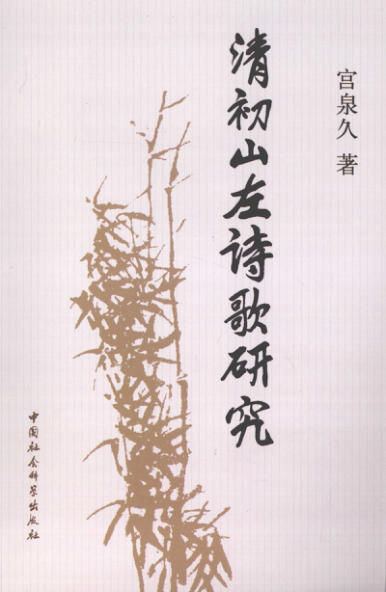 宫泉久 著
清初山左诗歌研究
中国社会科学出版社